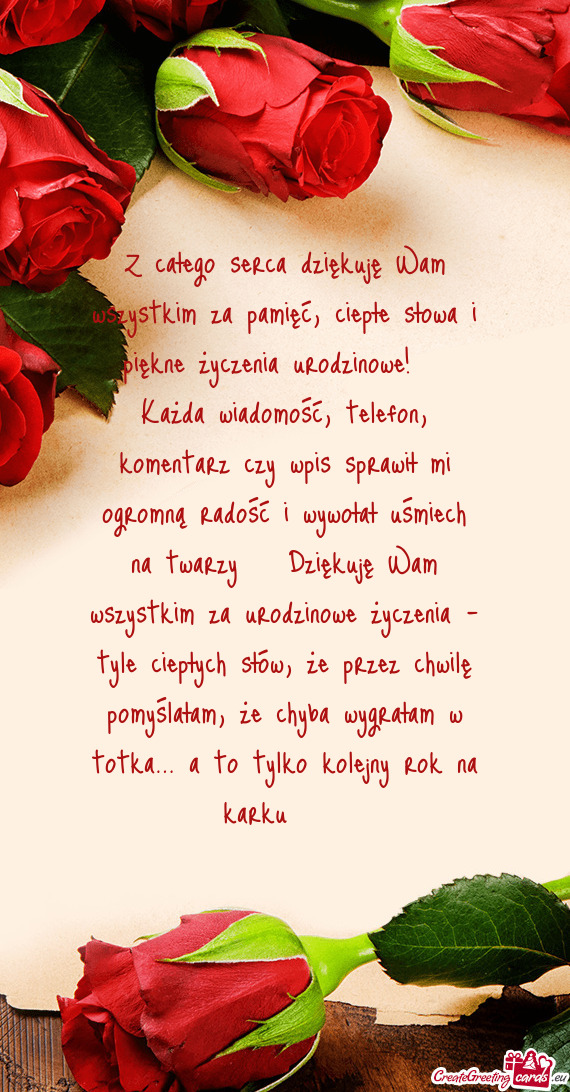 Z całego serca dziękuję Wam
wszystkim za pamięć, ciepłe słowa i
piękne życzenia urodzinowe!
Każda wiadomość, telefon,
komentarz czy wpis sprawił mi
ogromną radość i wywołał uśmiech
na twarzy Dziękuję Wam
wszystkim za urodzinowe życzenia -
tyle ciepłych słów, że przez chwilę
pomyślałam, że chyba wygrałam w
totka... a to tylko kolejny rok na
karku
CreateGreetingcards.eu